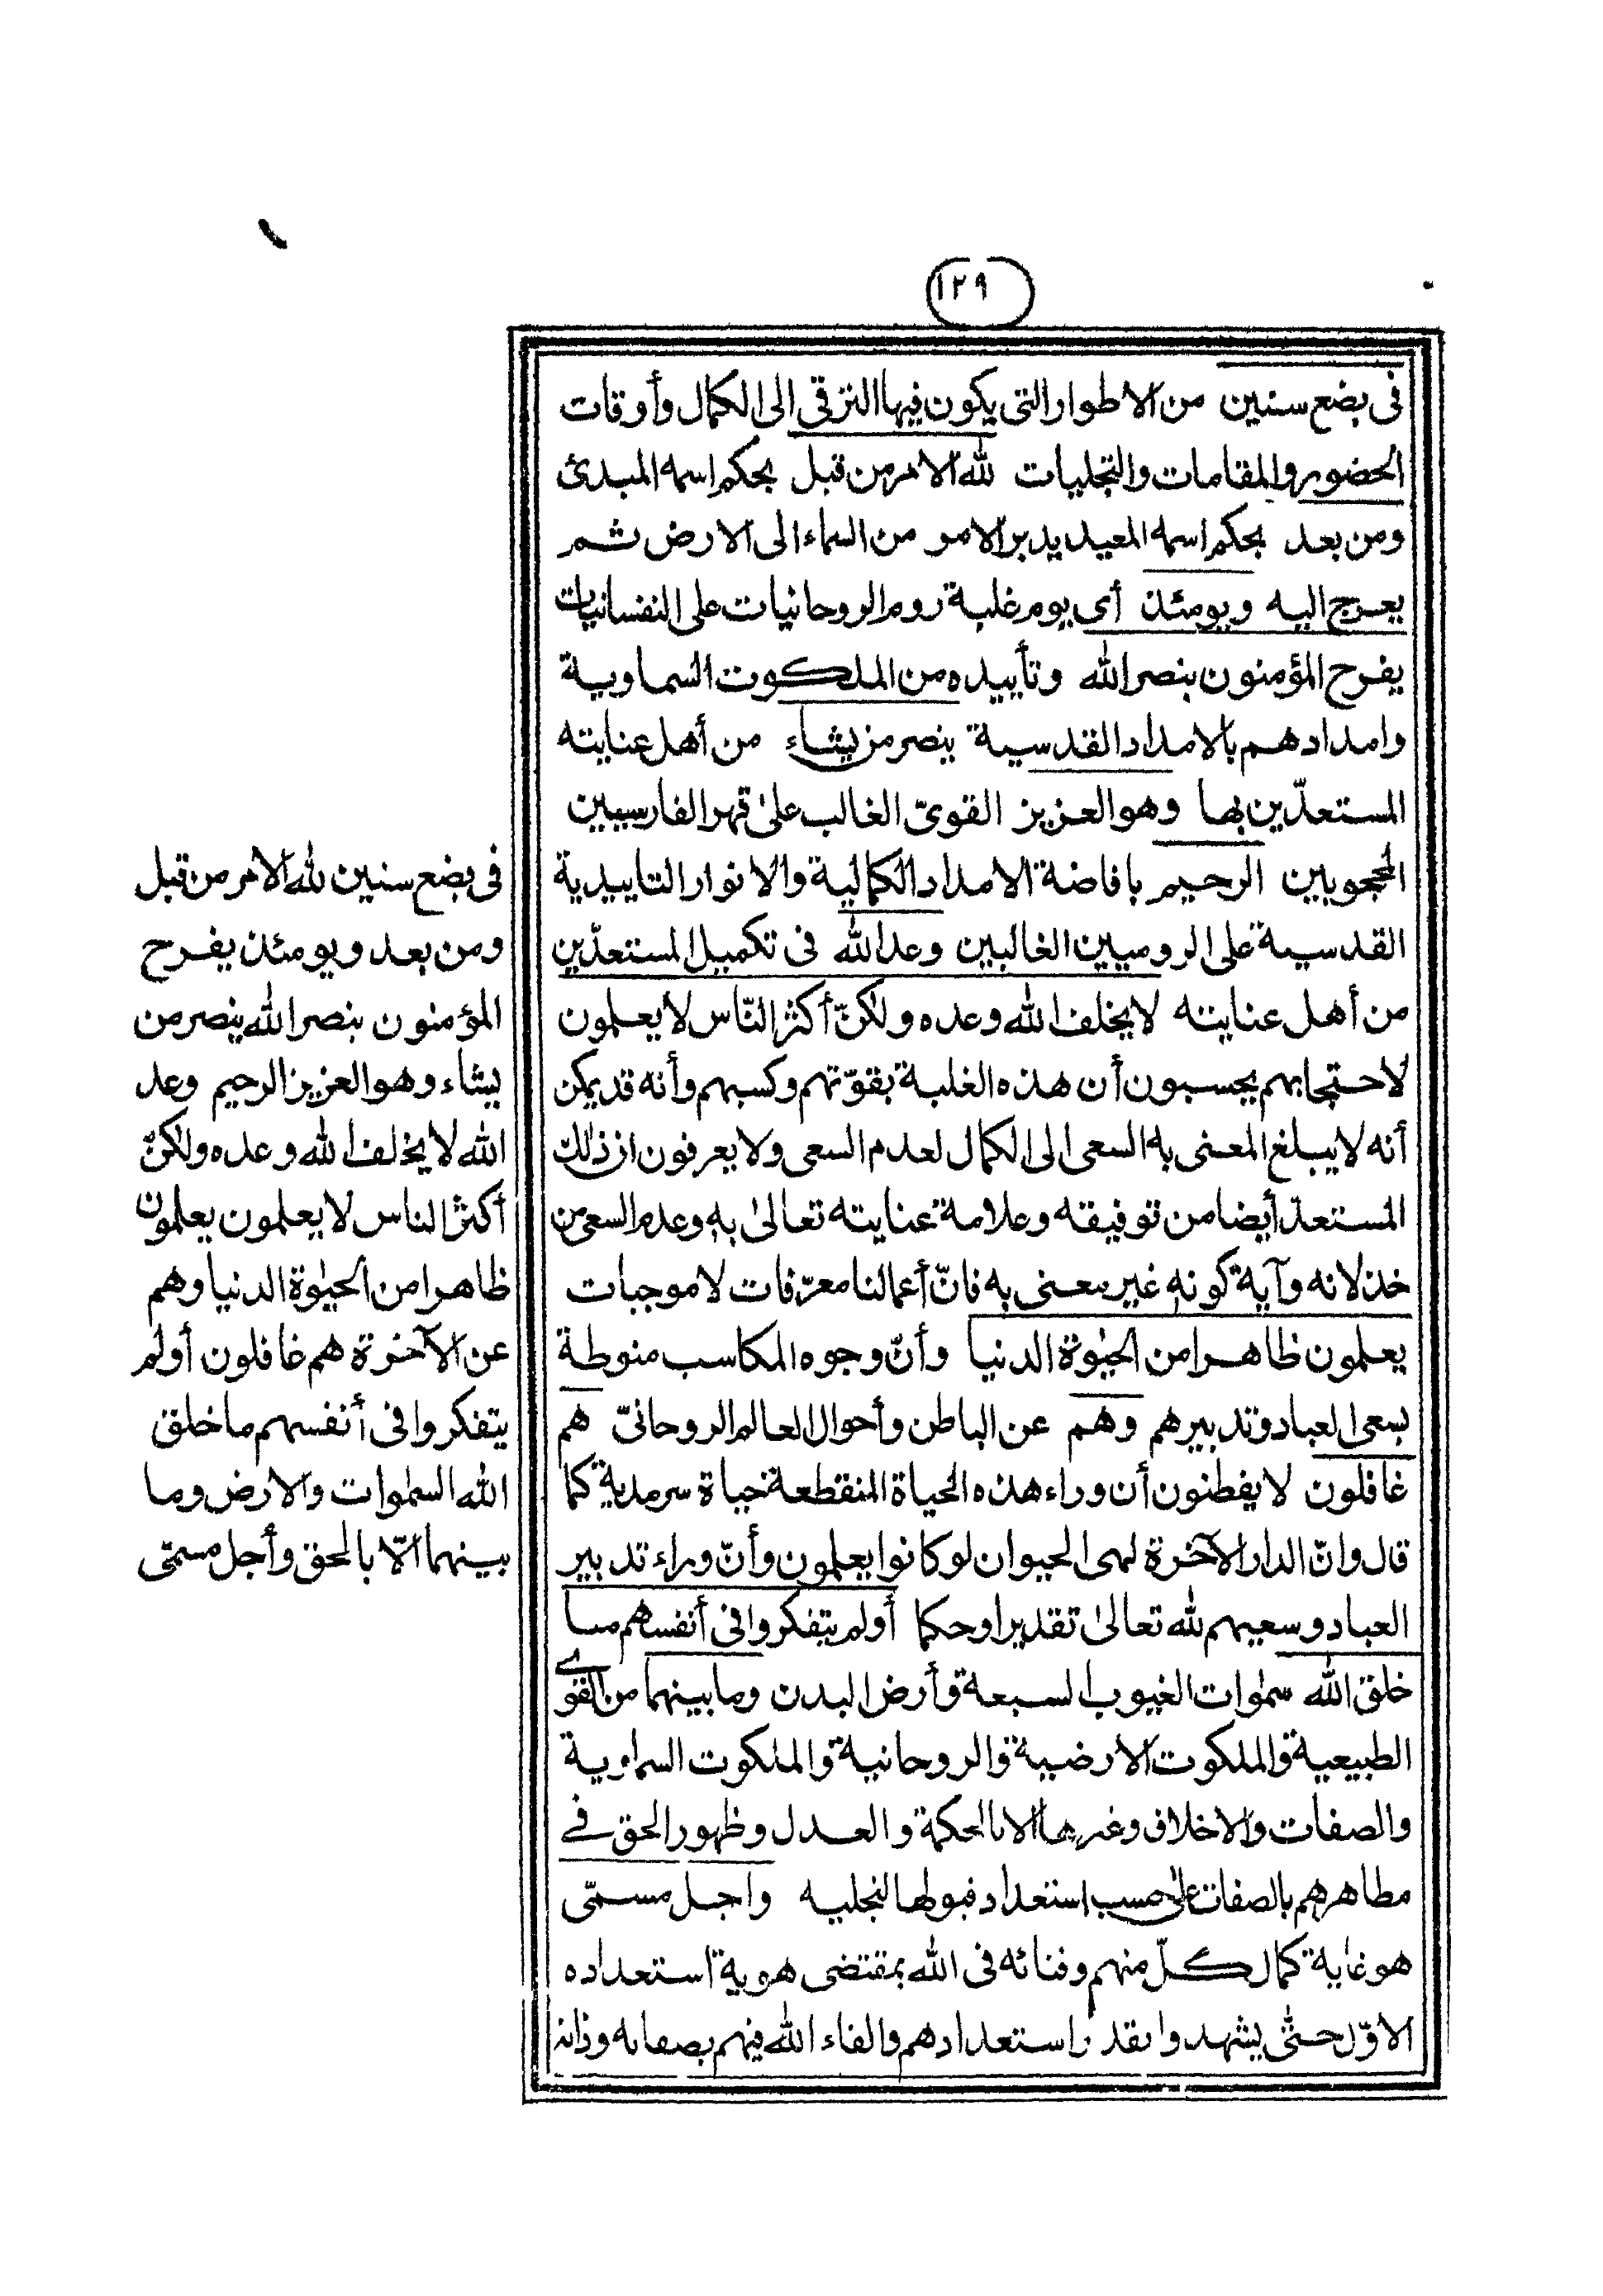 ١٢٩
فى بضع سنين من الاطوار التى يكون فيها الترقى الى الكمال وأوقات
الحضور والمقامات والتجليات لله الامر من قبل بحكم اسمه المبدئ
ومن بعد بحكم اسمه المعيد يدبر الامر من السماء الى الارض ثم
يعرج اليه ويومئذ أى يوم غلبة روم الروحانيات على النفسانيات
يفرح المؤمنون بنصر الله وتأييده من الملكوت السماوية
وامدادهم بالامداد القدسية ينصر من يشاء من أهل عنايته
المستعدّين بها وهو العزيز القوىّ الغالب على قهر الفارسيين
المحجوبين الرحيم بافاضة الامداد الكمالية والانوار التاييدية
القدسية على الروميين الغالبين وعد الله فى تكميل المستعدّين
من أهل عنايته لا يخلف الله وعده ولكنّ أكثر النّاس لا يعلمون
لاحتجابهم يحسبون أن هذه الغلبة بقوّتهم وكسبهم وأنه قد يمكن
أنه لا يبلغ المعنى به السعى الى الكمال لعدم السعى ولا يعرفون ان ذلك
المستعدّ أيضا من توفيقه وعلامة عنايته تعالى به وعدم السعى من
خذلانه وآية كونه غير معنى به فانّ أعمالنا معرّفات لا موجبات
يعلمون ظاهرا من الحيوة الدنيا وأنّ وجوه المكاسب منوطة
بسعى العباد وتدبيرهم وهم عن الباطن وأحوال العالم الروحانىّ هم
غافلون لا يفطنون أن وراء هذه الحياة المنقطعة حياة سرمدية كما
قال وانّ الدار الآخرة لهى الحيوان لو كانوا يعلمون وأنّ وراء تدبير
العباد وسعيهم لله تعالى تقديرا وحكما أولم يتفكروا فى أنفسهم ما
خلق الله سموات الغيوب السبعة وأرض البدن وما بينهما من القوى
الطبيعية والملكوت الارضية والروحانية والملكوت السماوية
والصفات والاخلاق وغيرها الا بالحكمة والعدل وظهور الحق فى
مظاهرهم بالصفات على حسب استعداد قبولها لتجليه وأجل مسمّى
هو غاية كمال كلّ منهم وفنائه فى الله بمقتضى هوية استعداده
الاوّل حتى يشهدوا بقدر استعدادهم والفاء الله فيهم بصفاته وذاته
فى بضع سنين لله الامر من قبل
ومن بعد ويومئذ يفرح
المؤمنون بنصر الله ينصر من
يشاء وهو العزيز الرحيم وعد
الله لا يخلف الله وعده ولكنّ
أكثر الناس لا يعلمون يعلمون
ظاهرا من الحيوة الدنيا وهم
عن الآخرة هم غافلون أولم
يتفكروا فى أنفسهم ما خلق
الله السموات والارض وما
بينهما الّا بالحق وأجل مسمّى